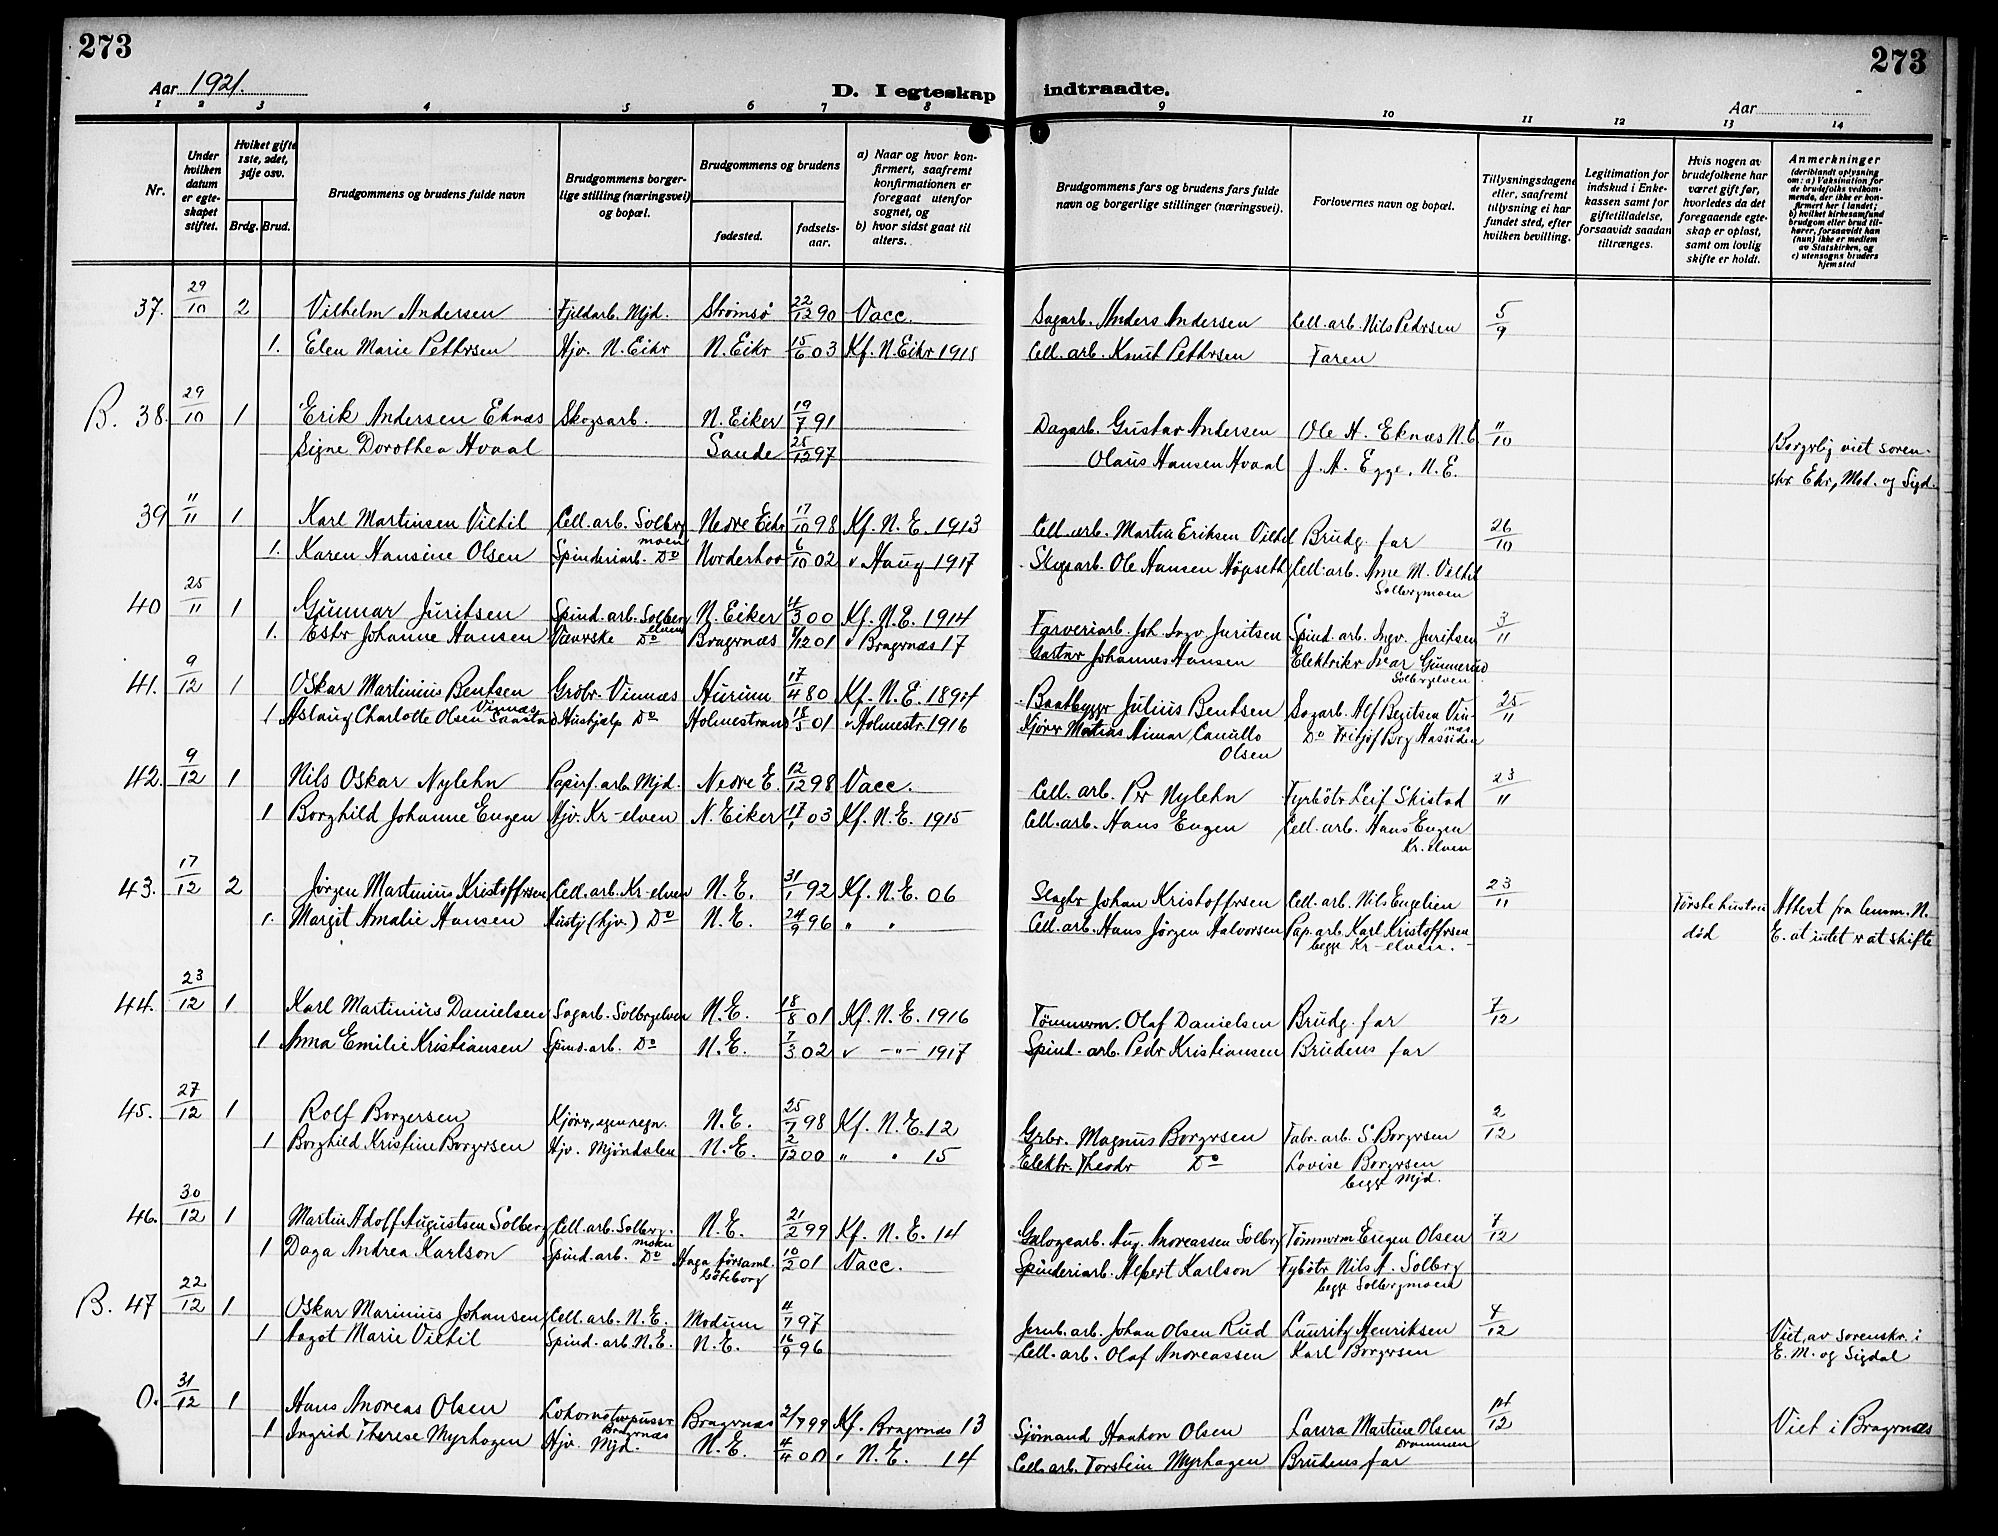 273
273
Aar 1921.
D. I egteskap indtraadte.
Aar
1 2 3 4 5 6 7 8 9 10 11 12 13 14
Nr.
Under hvilken datum er egteskapet stiftet.
Hvilket gifte 1ste, 2det, 3dje osv.
Brdg. Brud.
Brudgommens og brudens fulde navn
Brudgommens borgerlige stilling (næringsvei) og bopæl.
Brudgommens og brudens
fødested. fødselsaar.
a) Naar og hvor konfirmert, saafremt konfirmationen er foregaat utenfor sognet, og
b) hvor sidst gaat til alters.
Brudgommens fars og brudens fars fulde navn og borgerlige stillinger (næringsvei).
Forlovernes navn og bopæl.
Tillysningsdagene eller, saafremt tillysning ei har fundet sted, efter hvilken bevilling.
Legitimation for indskud i Enkekassen samt for giftetilladelse, forsaavidt saadan tiltrænges.
Hvis nogen av brudefolkene har været gift før, hvorledes da det foregaaende egteskap er opløst, samt om lovlig skifte er holdt.
Anmerkninger (deriblandt oplysning om: a) Vaksination for de brudefolks vedkommende, der ikke er konfirmert her i landet; b) hvilket kirkesamfund brudgom eller brud tilhører, forsaavidt han (hun) ikke er medlem av Statskirken, og c) utensogns bruders hjemsted
37. 29/10 2 Vilhelm Andersen Fjeldarb. Mjd. Strømsø 22/12 90 Vacc. Sagarb. Anders Andersen Cell. arb. Nils Pedersen 5/9
1. Elen Marie Pettersen Hjv. N. Eiker N. Eiker 15/6 03 Kf. N. Eiker 1918 Cell. arb. Knut Pettersen Faren
B. 38. 29/10 1 Erik Andersen Eknæs Skogsarb. N. Eiker 19/7 91 Dagarb. Gustav Andersen Ole A. Eknæs N. E 11/10
Signe Dorothea Hvaal Sande 25/12 97 Olaus Hansen Hvaal J. A. Egge, N. E. Borgerlig viet sorenskr Eker, Mod. og Sigd.
39 11/11 1 Karl Martinsen Viltil Cell. arb. Solbergmoen Nedre Eiker 17/10 98 Kf. N. E. 1913 Cell. arb. Martin Eriksen Viltil Brudg. far 26/10
1. Karen Hansine Olsen Spinderiarb. Do Norderhov 6/10 02 " Haug 1917 Skogsarb. Ole Hansen Høgseth Cell. arb. Arne M. Viltil Solbergmoen
40 25/11 1 Gunnar Juritsen Spind. arb. Solbergelven N. Eiker 4/3 00 Kf. N. E. 1914 Farveriarb. Joh. Ingv. Juritsen Spind. arb. Ingv. Juritsen 3/11
1. Ester Johanne Hansen Væverske Do Bragernæs 1/12 01 " Bragernæs 17 Gartner Johannes Hansen Elektriker Ivar Gunnerud Solbergelven
41. 9/12 1 Oskar Martinius Bentsen Grbr. Vinnæs Hurum 17/4 80 Kf. N. E. 1894 Baatbygger Julius Bentsen Sagarb. Alf Bentsen Vinnæs 25/11
1 Aslaug Charlotte Olsen Saastad Vinnæs Hushjælp Do Holmestrand 18/5 01 " Holmestr. 1916 Kjører Matias Aimar Camillo Olsen Do Fritjof Berg Aassiden
42. 9/12 1 Nils Oskar Nylehn Papirf. arb. Mjd. Nedre E. 12/12 98 Vacc. Cell. arb. Per Nylehn Fyrbøter Leif Skistad 23/11
1 Borghild Johanne Eugen Hjv. Kr-elven N. Eiker 17/1 03 Kf. N. E. 1915 Cell. arb. Hans Eugen Cell. arb. Hans Eugen Kr. elven
43. 17/12 2 Jørgen Martinius Kristoffersen Cell. arb. Kr-elven N. E. 31/1 92 Kf. N. E. 06 Slagter Johan Kristoffersen Cell. arb. Nils Engelien 23/11 Første hustru død Attest fra lensm. N. E. at intet er at skifte
1. Margit Amalie Hansen Hustj (hjv.) Do N. E. 24/9 96 " " Cell. arb. Hans Jørgen Halvorsen Pap. arb. Karl Kristoffersen begge Kr-elven.
44. 23/12 1 Karl Martinius Danielsen Sagarb. Solbergelven N. E. 18/8 01 Kf. N. E. 1916 Tømmerm. Olaf Danielsen Brudg. far 7/12
1 Anna Emilie Kristiansen Spind. arb. Do N. E. 7/3 02 " -"- 1917 Spind. arb. Peder Kristiansen Brudens far
45. 27/12 1 Rolf Borgersen Kjører, egen regn. N. E. 25/7 98 Kf. N. E. 12 Grbr. Magnus Borgersen Fabr. arb. S. Borgersen 2/12
1 Borghild Kristine Borgersen Hjv. Mjøndalen N. E. 2/12 00 " " 15 Elektr. Theodr Do Lovise Borgersen begge Mjd.
46. 30/12 1 Martin Adolf Augustsen Solberg Cell. arb. Solbergmoen N. E. 21/2 99 Kf. N. E. 14 Aug. Andreassen Solberg Tømmerm Eugen Olsen 7/12
1 Daga Andrea Karlson Spind. arb. Do Haga församl. Göteborg 10/2 01 Vacc. Spinderiarb. Albert Karlson Fybøter Nils A. Solberg begge Solbergmoen
B. 47 22/12 1 Oskar Marinius Johansen Cell. arb. N. E. Modum 4/7 97 Jernb. arb. Johan Olsen Rud Lauritz Henriksen 4/12
1 Dagot Marie Viltil Spind. arb. N. E. N. E. 16/9 96 Cell. arb. Olaf Andreassen Karl Borgersen Viet av sorenskr. i E. M. og Sigdal
0. 31/12 1 Hans Andreas Olsen Lokomotivpusser Bragernæs Bragernæs 2/7 99 Kf. Bragernæs 13 Sjømand Haakon Olsen Laura Martine Olsen Drammen 14/12 Viet i Bragernæs
1 Ingrid Therese Myrhagen Hjv. Mjd. N. E. 4/4 00 " N. E. 14 Cell. arb. Torstein Myrhagen Brudens far